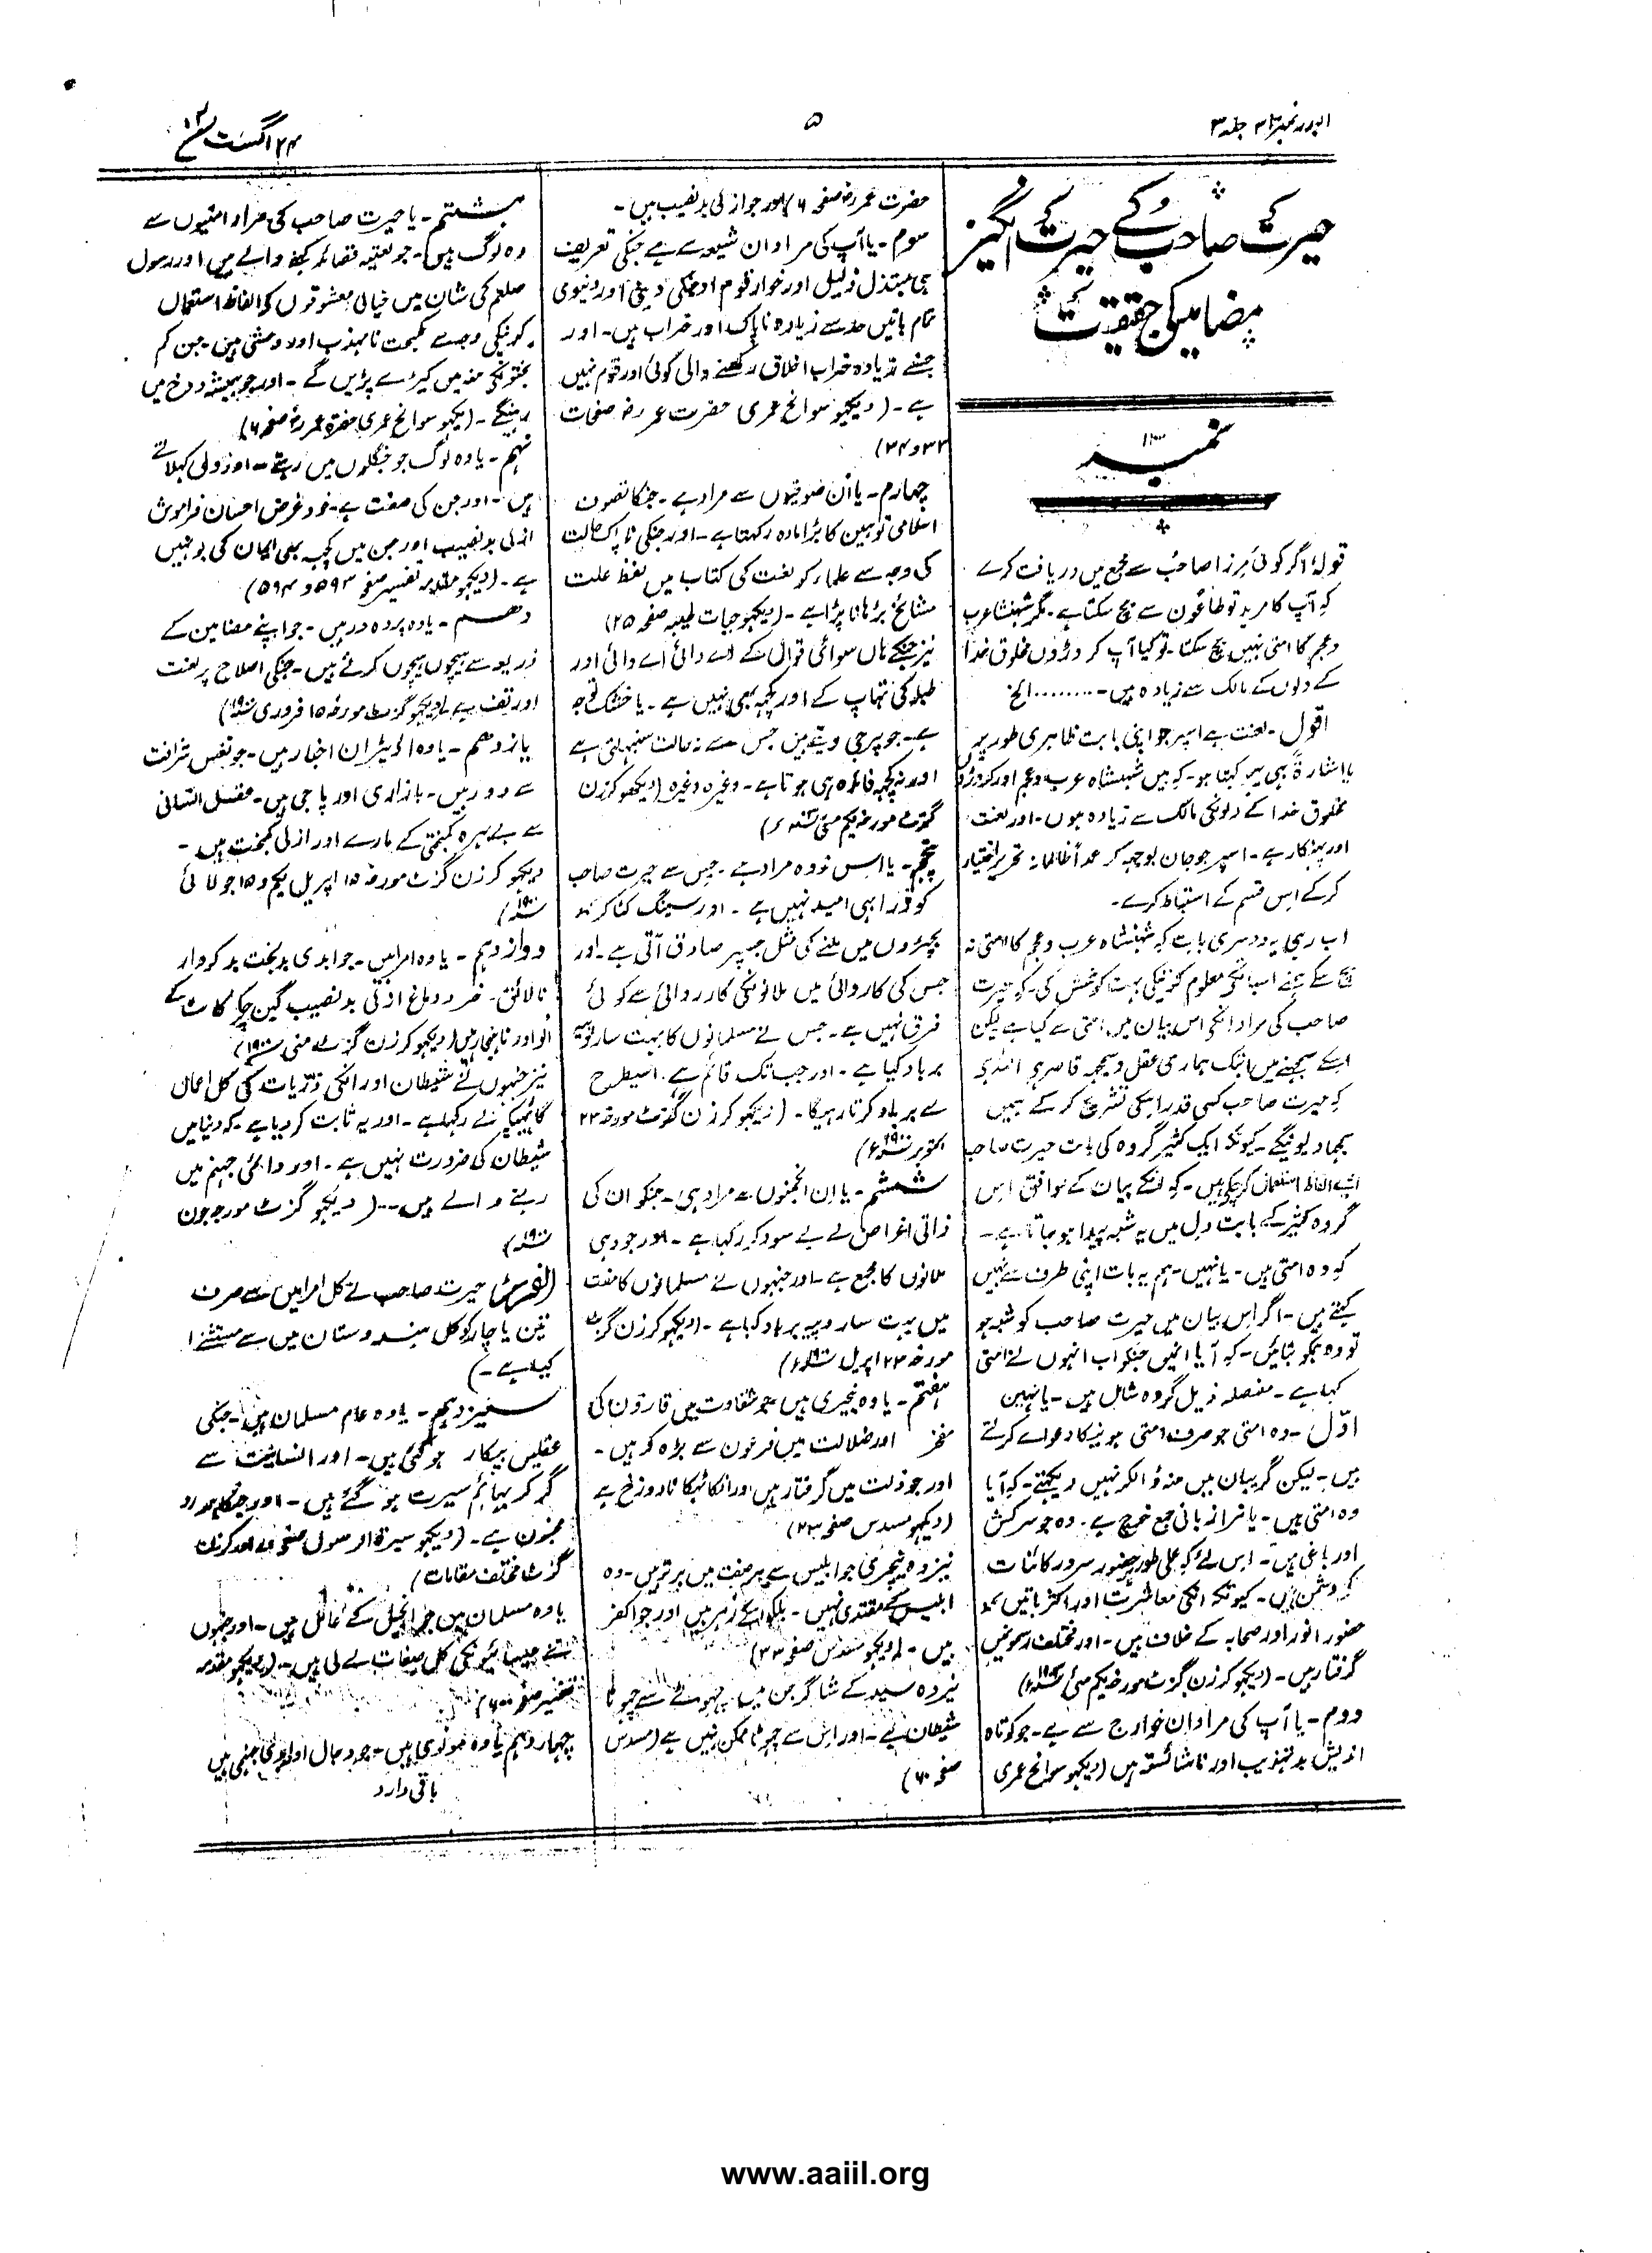 البدر نمبر ۳۲ جلد ۳
۵
۲۴ اگست
حیرت صاحب کے حیرت انگیز
مضامین کی حقیقت
نمبر
قولہ؛ اگر کوئی مرزا صاحب سے مجمع میں دریافت کرے
کہ آپ کا مرید تو طاعون سے بچ سکتا ہے۔ مگر شہنشاہ عرب
و عجم کا امتی نہیں بچ سکتا۔ تو کیا آپ کروڑوں مخلوق خدا
کے دلوں کے مالک سے زیادہ ہیں۔........ الخ
اقول۔ لعنت ہے اسپر جو اپنی بابت ظاہری طور پر
یا اشارۃً بھی یہ کہتا ہو۔ کہ میں شہنشاہ عرب و عجم اور کروڑوں
مخلوق خدا کے دلونکی مالک سے زیادہ ہوں۔ اور لعنت
اور پھٹکار ہے۔ اسپر جو جان بوجہہ کر عمداً ظالمانہ تحریر اختیار
کرکے اس قسم کے استنباط کرے۔
اب رہی یہ دوسری بات کہ شہنشاہ عرب و عجم کا امتی نہ
بچ سکے ہمنے اسباتکی معلوم کرنیکی بہت کوشش کی۔ کہ حیرت
صاحب کی مراد انکی اس بیان میں امتی سے کیا ہے لیکن
اسکے سمجہنے میں ابتک ہماری عقل و سمجہہ قاصر ہی
کہ حیرت صاحب کسی قدر اسکی تشریح کر کے ہمیں
سمجہا دیونگے۔ کیونکہ ایک کثیر گروہ کی بابت حیرت صاحب
ایسے الفاظ استعمال کرچکے ہیں۔ کہ انکے بیان کے موافق اس
گروہ کثیر کے بابت دل میں یہ شبہ پیدا ہو جاتا ہے۔
کہ وہ امتی ہیں۔ یا نہیں۔ ہم یہ بات اپنی طرف سے نہیں
کہتے ہیں۔ اگر اس بیان میں حیرت صاحب کو شبہ ہو
تو وہ ہمکو بتائیں۔ کہ آیا انہیں جنکو اب انہوں نے امتی
کہا ہے۔ مفصلہ ذیل گروہ شامل ہیں۔ یا نہیں
اوّل۔ وہ امتی جو صرف امتی ہونیکا دعوے کرتے
ہیں۔ لیکن گریبان میں منہ ڈالکر نہیں دیکہتے۔ کہ آیا
وہ امتی ہیں۔ یا نرا زبانی جمع خرچ ہے۔ وہ جو سرکش
اور باغی ہیں۔ اس لئے کہ عملی طور حضور سرور کائنات
کے دشمن ہیں۔ کیونکہ انکی معاشرت اور اکثر باتیں
حضور انور اور صحابہ کے خلاف ہیں۔ اور مختلف رسمونمیں
گرفتار ہیں۔ (دیکہو کرزن گزٹ مورخہ یکم مئی
دوم۔ یا آپ کی مراد ان خوارج سے ہے۔ جو کوتاہ
اندیش بد تہذیب اور ناشائستہ ہیں (دیکہو سوانح عمری
حضرت عمر رض صفحہ ۶) اور جو ازلی بدنصیب ہیں۔
سوم۔ یا آپ کی مراد ان شیعہ سے ہے جنکی تعریف
ہی مبتذل ذلیل اور خوار قوم اور جنکی دینی اور دنیوی
تمام باتیں حد سے زیادہ ناپاک اور خراب ہیں۔ اور
جنسے زیادہ خراب اخلاق رکھنے والی کوئی اور قوم نہیں
ہے۔ (دیکہو سوانح عمری حضرت عمر رض صفحات
۳۳ و ۳۴)
چہارم۔ یا ان صوفیوں سے مراد ہے۔ جنکا تصوف
اسلامی توہین کا بڑا مادہ رکہتا ہے۔ اور جنکی ناپاک حالت
کی وجہ سے علماء کو لغت کی کتاب میں لفظ علت
مشائخ بڑہانا پڑا ہے۔ (دیکہو حیات طیبہ صفحہ ۲۵)
نیز جنکے ہاں سوائی قوال کے اے وائی اے وائی اور
طبلہ کی تہاپ کے اور کچہہ بھی نہیں ہے۔ یا خشک توجہ
ہے۔ جو پرجی دیتے ہیں جس سے نہ حالت سنبہلتی ہے
اور نہ کچہہ فائدہ ہی ہوتا ہے۔ وغیرہ وغیرہ (دیکھو کرزن
گزٹ مورخہ یکم مئی
پنجم۔ یا اس ندوہ مراد ہے۔ جس سے حیرت صاحب
کو ذرا بہی امید نہیں ہے۔ اور سینگ کٹا کر
بچہڑوں میں ملنے کی مثل جسپر صادق آتی ہے۔ اور
جس کی کاروائی میں ملانونکی کارروائی سے کوئی
فرق نہیں ہے۔ جس نے مسلمانوں کا بہت سا روپیہ
برباد کیا ہے۔ اور جب تک قائم ہے۔ اسیطرح
سے برباد کرتا رہیگا۔ (دیکہو کرزن گزٹ مورخہ ۲۳
اکتوبر
ششم۔ یا ان انجمنوں سے مراد ہی۔ جنکو ان کی
ذاتی اغراض نے بے سود کر رکہا ہے۔ اور جو دہی
ملانوں کا مجمع ہے۔ اور جنہوں نے مسلمانوں کا مفت
میں بہت سا روپیہ برباد کیا ہے۔ (دیکہو کرزن گزٹ
مورخہ ۲۳ اپریل
ہفتم۔ یا وہ نیچری ہیں جو شقاوت میں قارون کی
فخر اور ضلالت میں فرعون سے بڑہ کر ہیں۔
اور جو ذلت میں گرفتار ہیں اور انکا ٹہکانا دوزخ ہے
(دیکہو مسدس صفحہ ۲۳)
نیز وہ نیچری جو ابلیس سے ہر صفت میں برتر ہیں۔ وہ
ابلیس کے مقتدی نہیں۔ بلکہ اسکے اور جو اکفر
ہیں۔ (دیکہو مسدس صفحہ ۲۳)
نیز وہ سید کے شاگرد جن میں چہوٹے سے چہوٹا
شیطان ہے۔ اور اس سے چہوٹنا ممکن نہیں ہے (مسدس
صفحہ ۶۰)
ہشتم۔ یا حیرت صاحب کی مراد امتیوں سے
وہ لوگ ہیں کہ جو نعتیہ قصائد کہنے والے ہیں اور رسول
صلعم کی شان میں خیالی معشوقوں کو الفاظ استعمال
کرنیکی وجہ سے کمبخت نامہذب اور وحشی ہیں۔ جن کم
بختونکی منہ میں کیڑے پڑیں گے۔ اور جو ہمیشہ دوزخ میں
رہینگے۔ (دیکہو سوانح عمری حضرۃ عمر رض صفحہ ۶)
نہم۔ یا وہ لوگ جو جنگلوں میں رہتے۔ اور ولی کہلاتے
ہیں۔ اور جن کی صفت ہے۔ خود غرض احسان فراموش
ازلی بدنصیب اور جن میں کچہہ بھی ایمان کی بو نہیں
ہے۔ (دیکہو مقدمہ تفسیر صفحہ ۵۹۳ و ۵۹۴)
دہم۔ یا وہ پردہ در ہیں۔ جو اپنے مضامین کے
ذریعہ سے ہیچوں ہیچوں کرتے ہیں۔ جنکی اصلاح پر لعنت
اور تف ہے۔ (دیکہو گزٹ مورخہ ۱۵ فروری
یازدہم۔ یا وہ اڈیٹران اخبار ہیں۔ جو نفس شرافت
سے دور ہیں۔ بازاری اور پاجی ہیں۔ عقل انسانی
سے بے بہرہ کمبختی کے مارے اور ازلی کمبخت ہیں۔
دیکہو کرزن گزٹ مورخہ ۱۵ اپریل یکم و ۱۵ جولائی
دوازدہم۔ یا وہ امرا ہیں۔ جو ابدی بدبخت بدکردار
نالائق۔ خر دماغ ازلی بدنصیب کاٹ کے
الو اور ناہنجار ہیں (دیکہو کرزن گزٹ مئی
نیز جنہوں نے شیطان اور انکی ذریات کی کل اعمال
کا ٹہیکہ لے رکہا ہے۔ اور یہ ثابت کر دیا ہے۔ کہ دنیا میں
شیطان کی ضرورت نہیں ہے۔ اور دائمی جہنم میں
رہنے والے ہیں۔۔ (دیکہو گزٹ مورخہ جون
حیرت صاحب نے کل امرا میں سے صرف
تین یا چار کو کل ہندوستان میں سے مستثنےٰ
کیا ہے۔)
سیزدہم۔ یا وہ عام مسلمان ہیں۔ جنکی
عقلیں بیکار ہو گئی ہیں۔ اور انسانیت سے
گر کر بہائم سیرت ہو گئے ہیں۔ اور جنکا ہمدرد
مجنون ہے۔ (دیکہو سیرۃ الرسول صفحہ اور کرزن
گزٹ مختلف مقامات)
یا وہ مسلمان ہیں جو انجیل کے عامل ہیں۔ اور جنہوں
نے عیسائیونکی کل صفات لے لی ہیں۔ (دیکہو مقدمہ
تفسیر صفحہ ۶۰۰)
چہاردہم یا وہ مولوی ہیں۔ جو دجال اور جہنمی ہیں
باقی دارد
www.aaiil.org